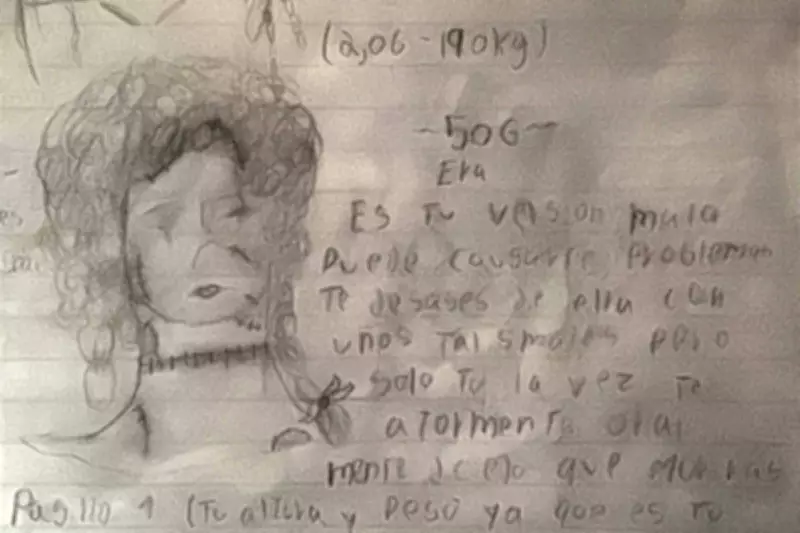 (2,06 - 190kg)
~506~
Era
Es Tu version mala
Puede causarte Problemas
Te desases de ella con
uños Talismanes pero
solo Tu la vez Te
atormenta oral
mente deseo que mueras
Pasillo 1 (Tu altura y peso ya que es Tu